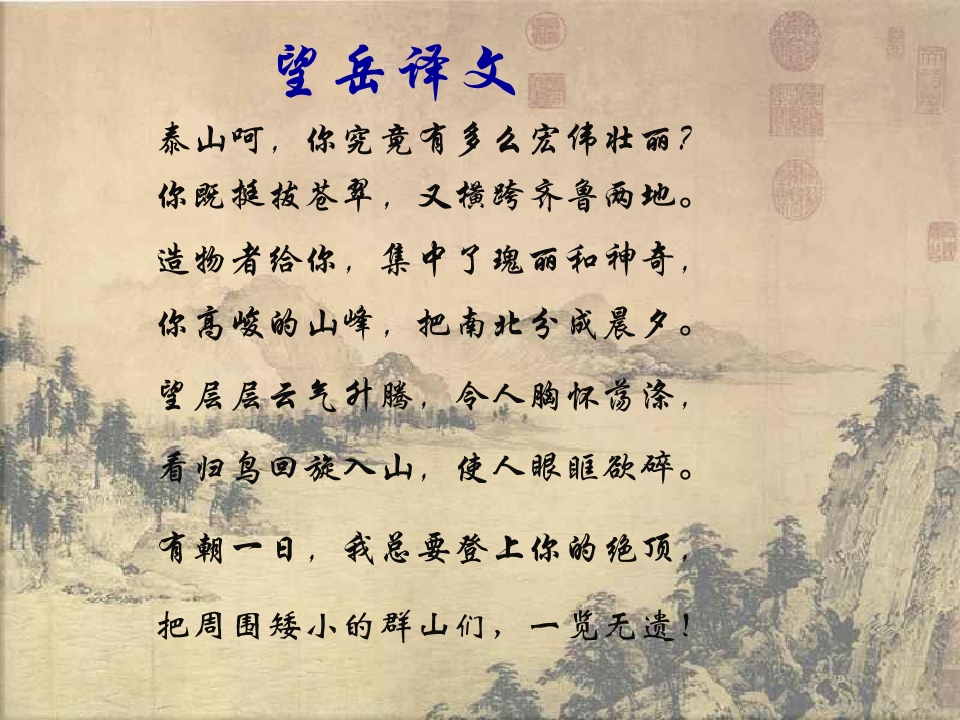 望岳译文
泰山呵，你究竟有多么宏伟壮丽？
你既挺拔苍翠，又横跨齐鲁两地。
造物者给你，集中了瑰丽和神奇，
你高峻的山峰，把南北分成晨夕。
望层层云气升腾，令人胸怀荡涤，
看归鸟回旋入山，使人眼眶欲碎。
有朝一日，我总要登上你的绝顶，
把周围矮小的群山们，一览无遗！